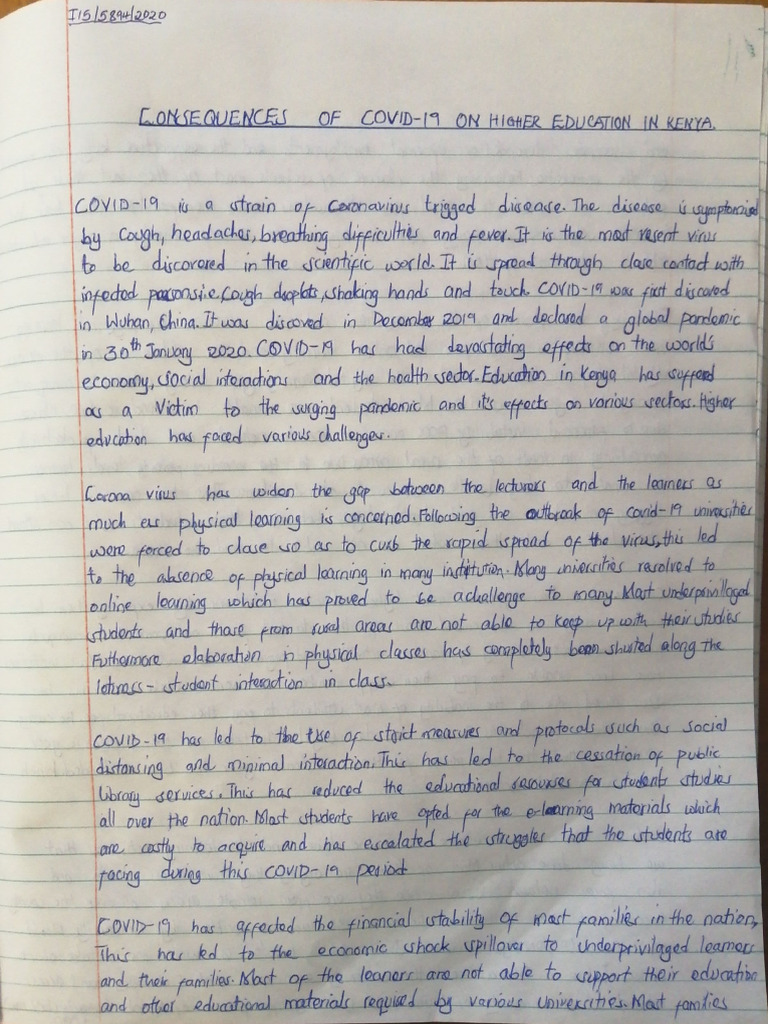 I15/5894/2020
CONSEQUENCES OF COVID-19 ON HIGHER EDUCATION IN KENYA.
COVID-19 is a strain of Coronavirus trigged disease. The disease is symptomised
by Cough, headaches, breathing difficulties and fever. It is the most resent virus
to be discovered in the scientific world. It is spread through close contact with
infected persons i.e. Cough droplets, shaking hands and touch. COVID-19 was first discoved
in Wuhan, China. It was discoved in December 2019 and declared a global pandemic
in 30th January 2020. COVID-19 has had devastating effects on the world's
economy, social interactions and the health sector. Education in Kenya has sufferd
as a Victim to the surging pandemic and its effects on various sectors. Higher
education has faced various challenges.
Corona virus has widen the gap between the lecturers and the learners as
much as physical learning is concerned. Following the outbreak of covid-19 universities
were forced to close so as to curb the rapid spread of the virus, this led
to the absence of physical learning in many institution. Many universities resolved to
online learning which has proved to be a challenge to many. Most underprivillaged
students and those from rural areas are not able to keep up with their studies
Futhermore elaboration in physical classes has completely been shutted along the
student interaction in class.
COVID-19 has led to the use of strict measures and protocals such as social
distansing and minimal interaction. This has led to the cessation of public
library services. This has reduced the educational resourses for students studies
all over the nation. Most students have opted for the e-learning materials which
are costly to acquire and has escalated the struggles that the students are
facing during this COVID-19 period
COVID-19 has affected the financial stability of most families in the nation,
This has led to the economic shock spillover to underprivilaged learners
and their families. Most of the leaners are not able to support their education
and other educational materials required by various Universities. Most families